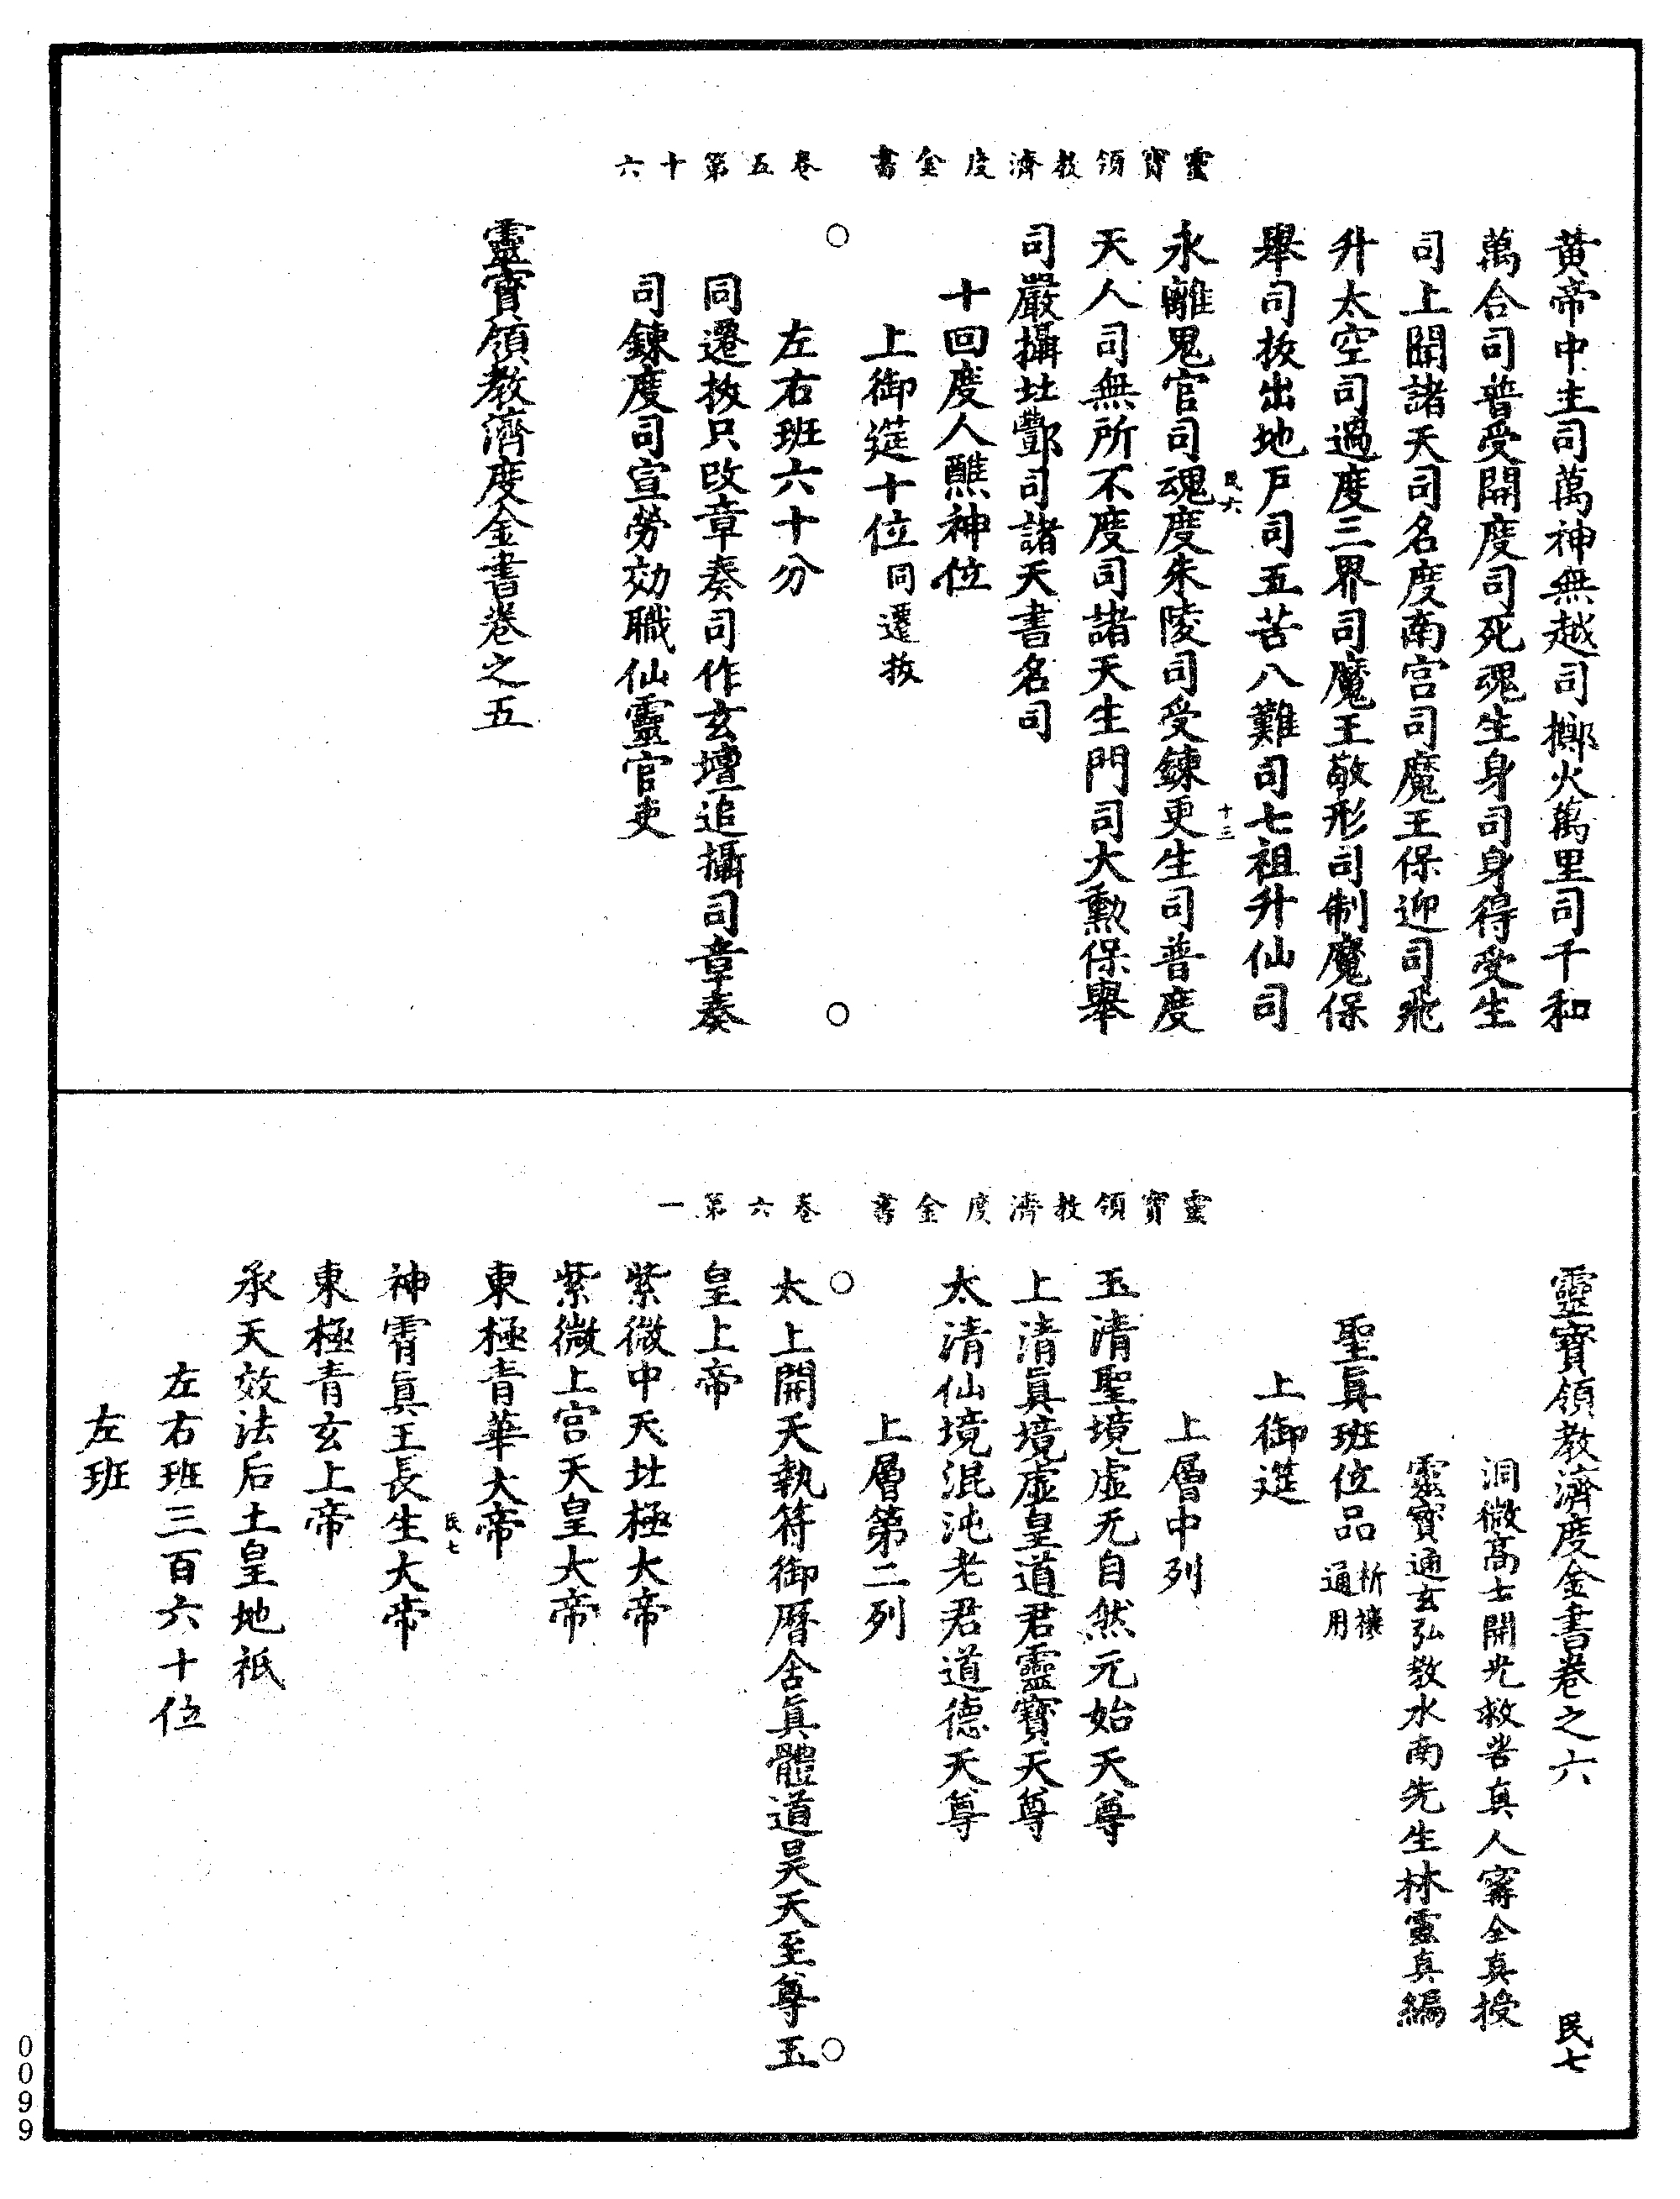 靈寶領教濟度金書　卷五第十六
黃帝中主司萬神無越司擲火萬里司千和
萬合司普受開度司死魂生身司身得受生
司上開諸天司名度南宮司魔王保迎司飛
升太空司過度三界司魔王敬形司制魔保
舉司拔出地戶司五苦八難司七祖升仙司
民六　十三
永離鬼官司魂度朱陵司受鍊更生司普度
天人司無所不度司諸天生門司大勳保舉
司嚴攝北酆司諸天書名司
十回度人醮神位
上御筵十位同遷拔
左右班六十分
同遷拔只改章奏司作玄壇追攝司章奏
司鍊度司宣勞効職仙靈官吏
靈寶領教濟度金書卷之五
靈寶領教濟度金書　卷六第一
靈寶領教濟度金書卷之六　民七
洞微高士開光救苦真人甯全真授
靈寶通玄弘教水南先生林靈真編
聖眞班位品祈禳通用
上御筵
上層中列
玉清聖境虛无自然元始天尊
上清眞境虛皇道君靈寶天尊
太清仙境混沌老君道德天尊
上層第二列
太上開天執符御曆含眞體道昊天至尊玉
皇上帝
紫微中天北極大帝
紫微上宮天皇大帝
東極青華大帝
民七
神霄眞王長生大帝
東極青玄上帝
承天效法后土皇地祇
左右班三百六十位
左班
0099